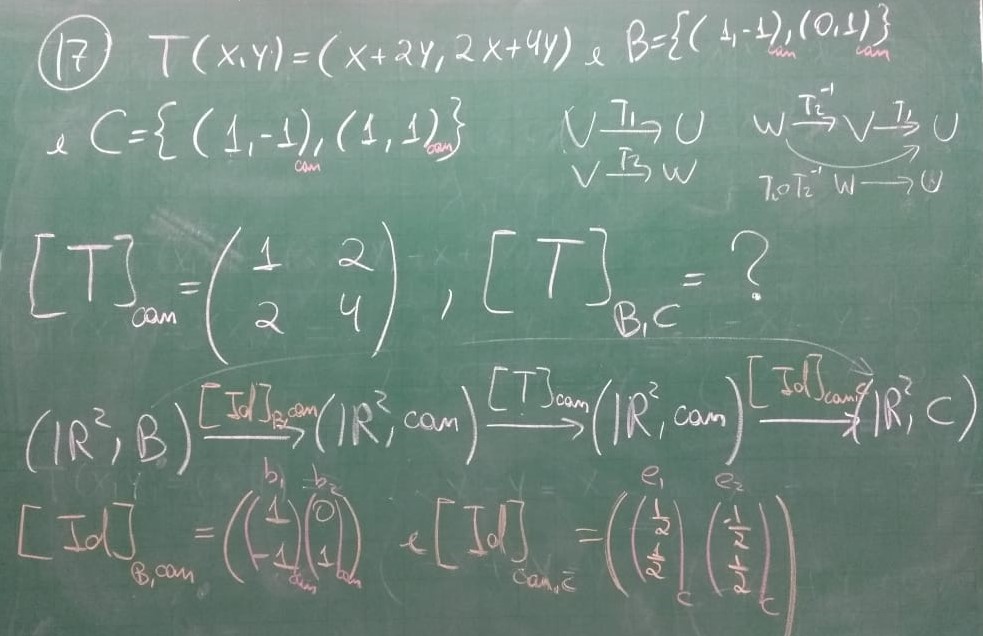 17 T(x,y)=(x+2y,2x+4y) e B={(1,-1)can,(0,1)can}
e C={(1,-1)can,(1,1)can}
V T₁→ U W T₂⁻¹→ V T₁→ U
V T₂→ W T₁∘T₂⁻¹ W → U
[T]can = (1 2
2 4) , [T]B,C = ?
(ℝ², B) [Id]B,can→ (ℝ², can) [T]can→ (ℝ², can) [Id]can,C→ (ℝ², C)
b₁ b₂ e₁ e₂
[Id]B,can = ((1 -1)can (0 1)can) e [Id]can,C = ((1/2 1/2)C (-1/2 1/2)C)